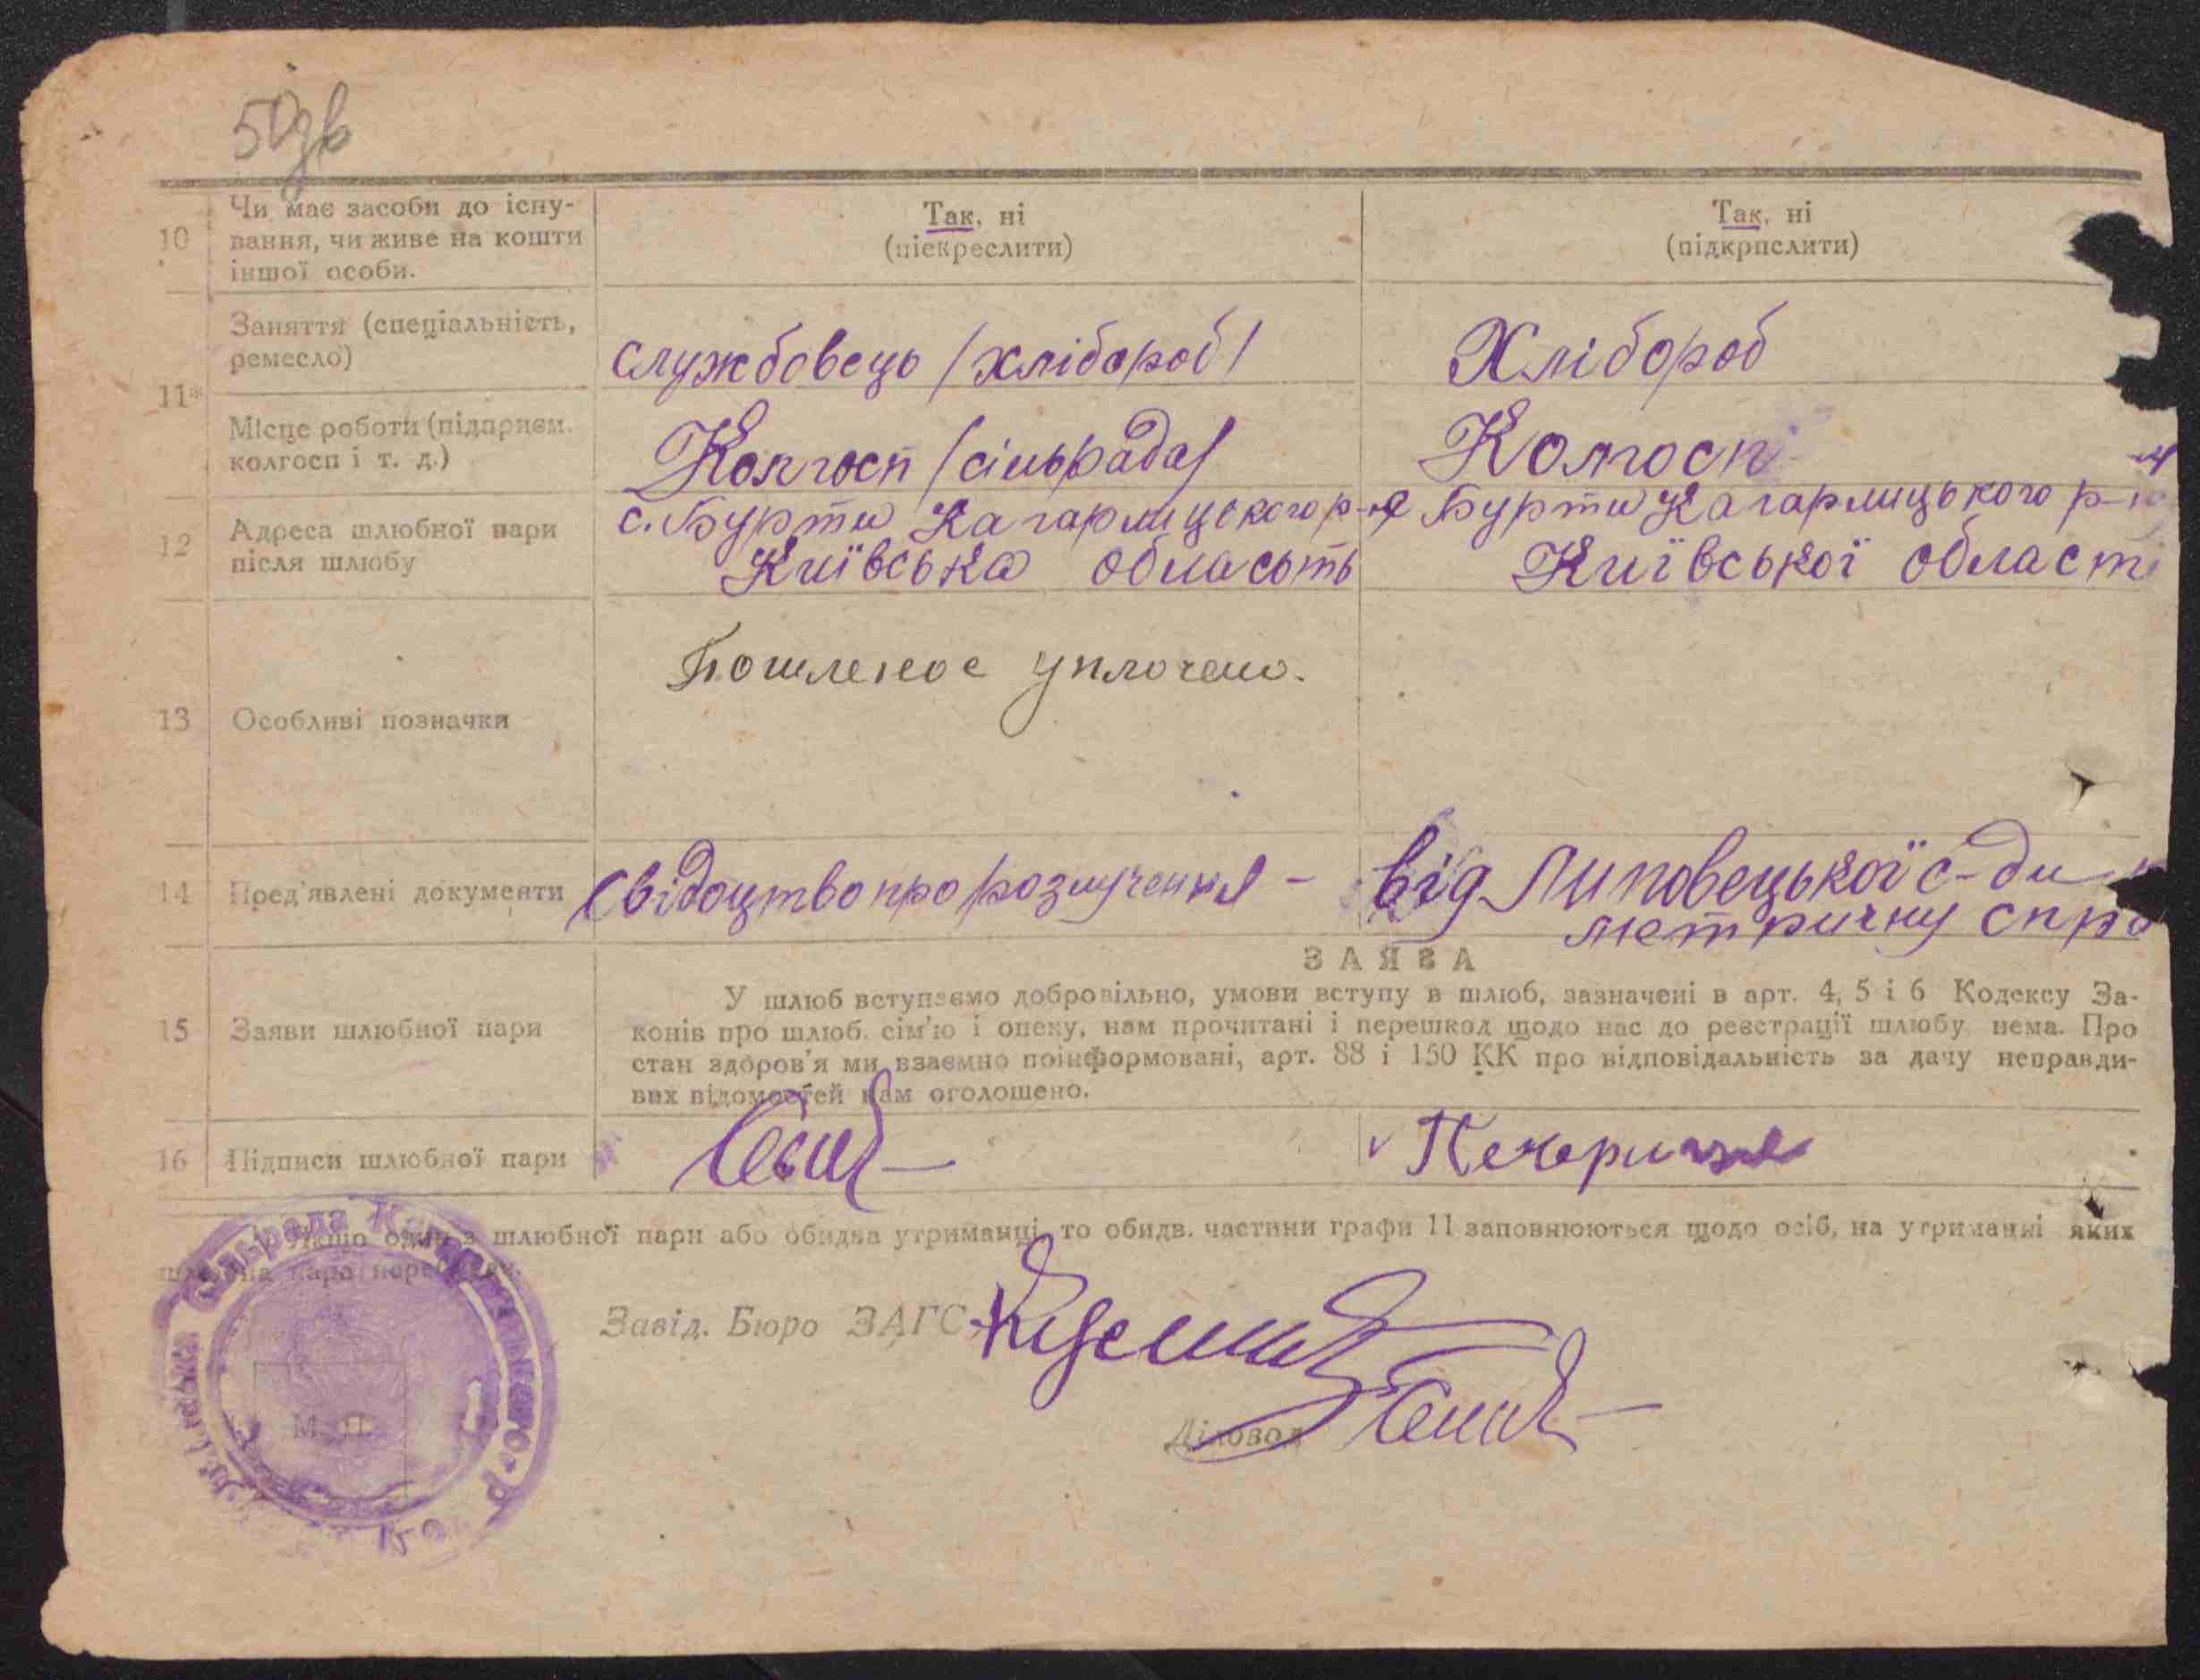 50зв
10
Чи має засоби до існу-
вання, чи живе на кошти
іншої особи.
Так, ні
(піекреслити)
Так, ні
(підкрпслити)
11*
Заняття (спеціальність,
ремесло)
службовець /хлібороб/
Хлібороб
Місце роботи (підприєм.
колгосп і т. д.)
Колгосп /сільрада/
Колгосп
12
Адреса шлюбної пари
після шлюбу
с. Бурти Кагарлицького р-н
Київська обласьть
Бурти Кагарлицького р-н
Київської області
13
Особливі позначки
Пошленое уплочено.
14
Пред'явлені документи
Свідоцтво про розлучення -
від Липовецької с-ди
метричну спра
ЗАЯВА
15
Заяви шлюбної пари
У шлюб вступаємо добровільно, умови вступу в шлюб, зазначені в арт. 4, 5 і 6 Кодексу За-
конів про шлюб. сім'ю і опеку, нам прочитані і перешкод щодо нас до реєстрації шлюбу нема. Про
стан здоров'я ми взаємно поінформовані, арт. 88 і 150 КК про відповідальність за дачу неправди-
вих відомостей нам оголошено.
16
Підписи шлюбної пари
Якщо один з шлюбної пари або обидва утриманці, то обидв. частини графи 11 заповнюються щодо осіб, на утриманні яких
шлюбна пара перебуває.
Завід. Бюро ЗАГС
М. П.
Діловод